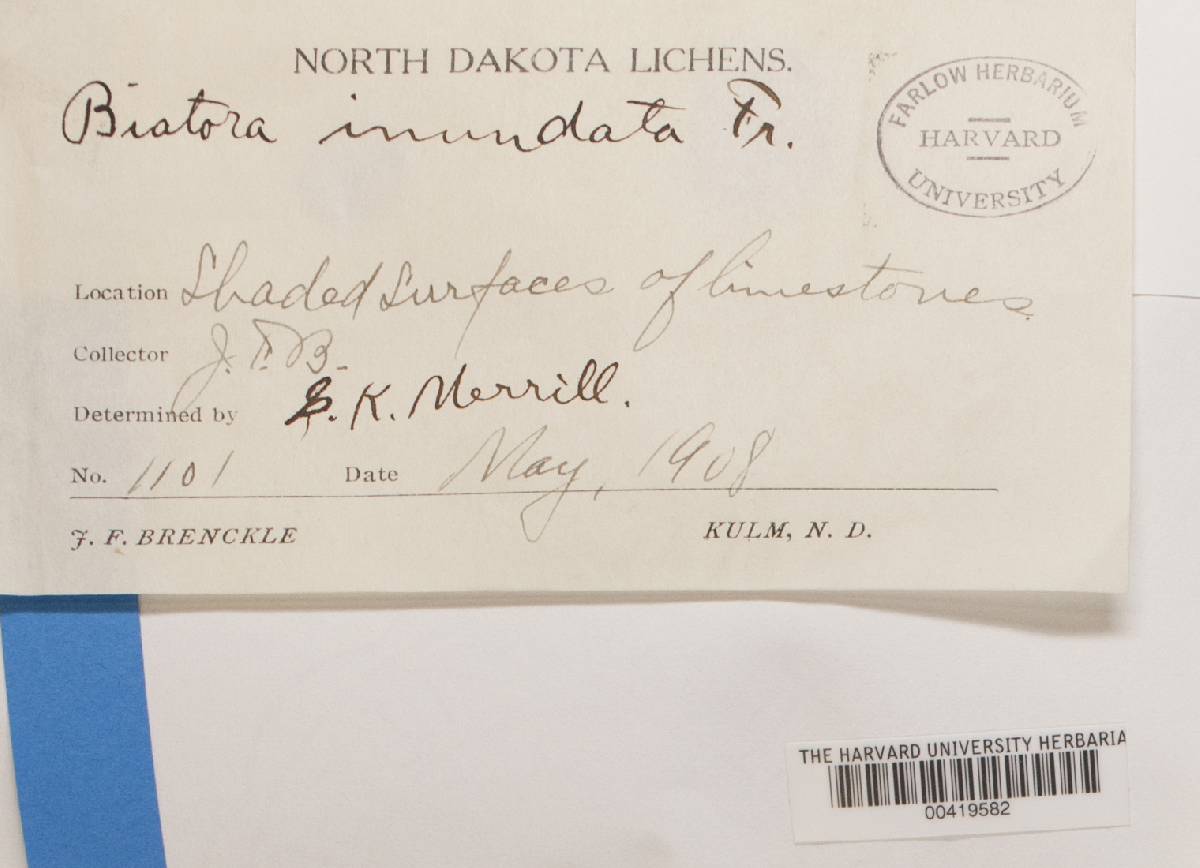 NORTH DAKOTA LICHENS.
Biatora inundata Fr.
FARLOW HERBARIUM
HARVARD
UNIVERSITY
Location Shaded surfaces of limestones.
Collector J. F. B.
Determined by G. K. Merrill.
No. 1101 Date May, 1908
J. F. BRENCKLE KULM, N. D.
THE HARVARD UNIVERSITY HERBARIA
00419582